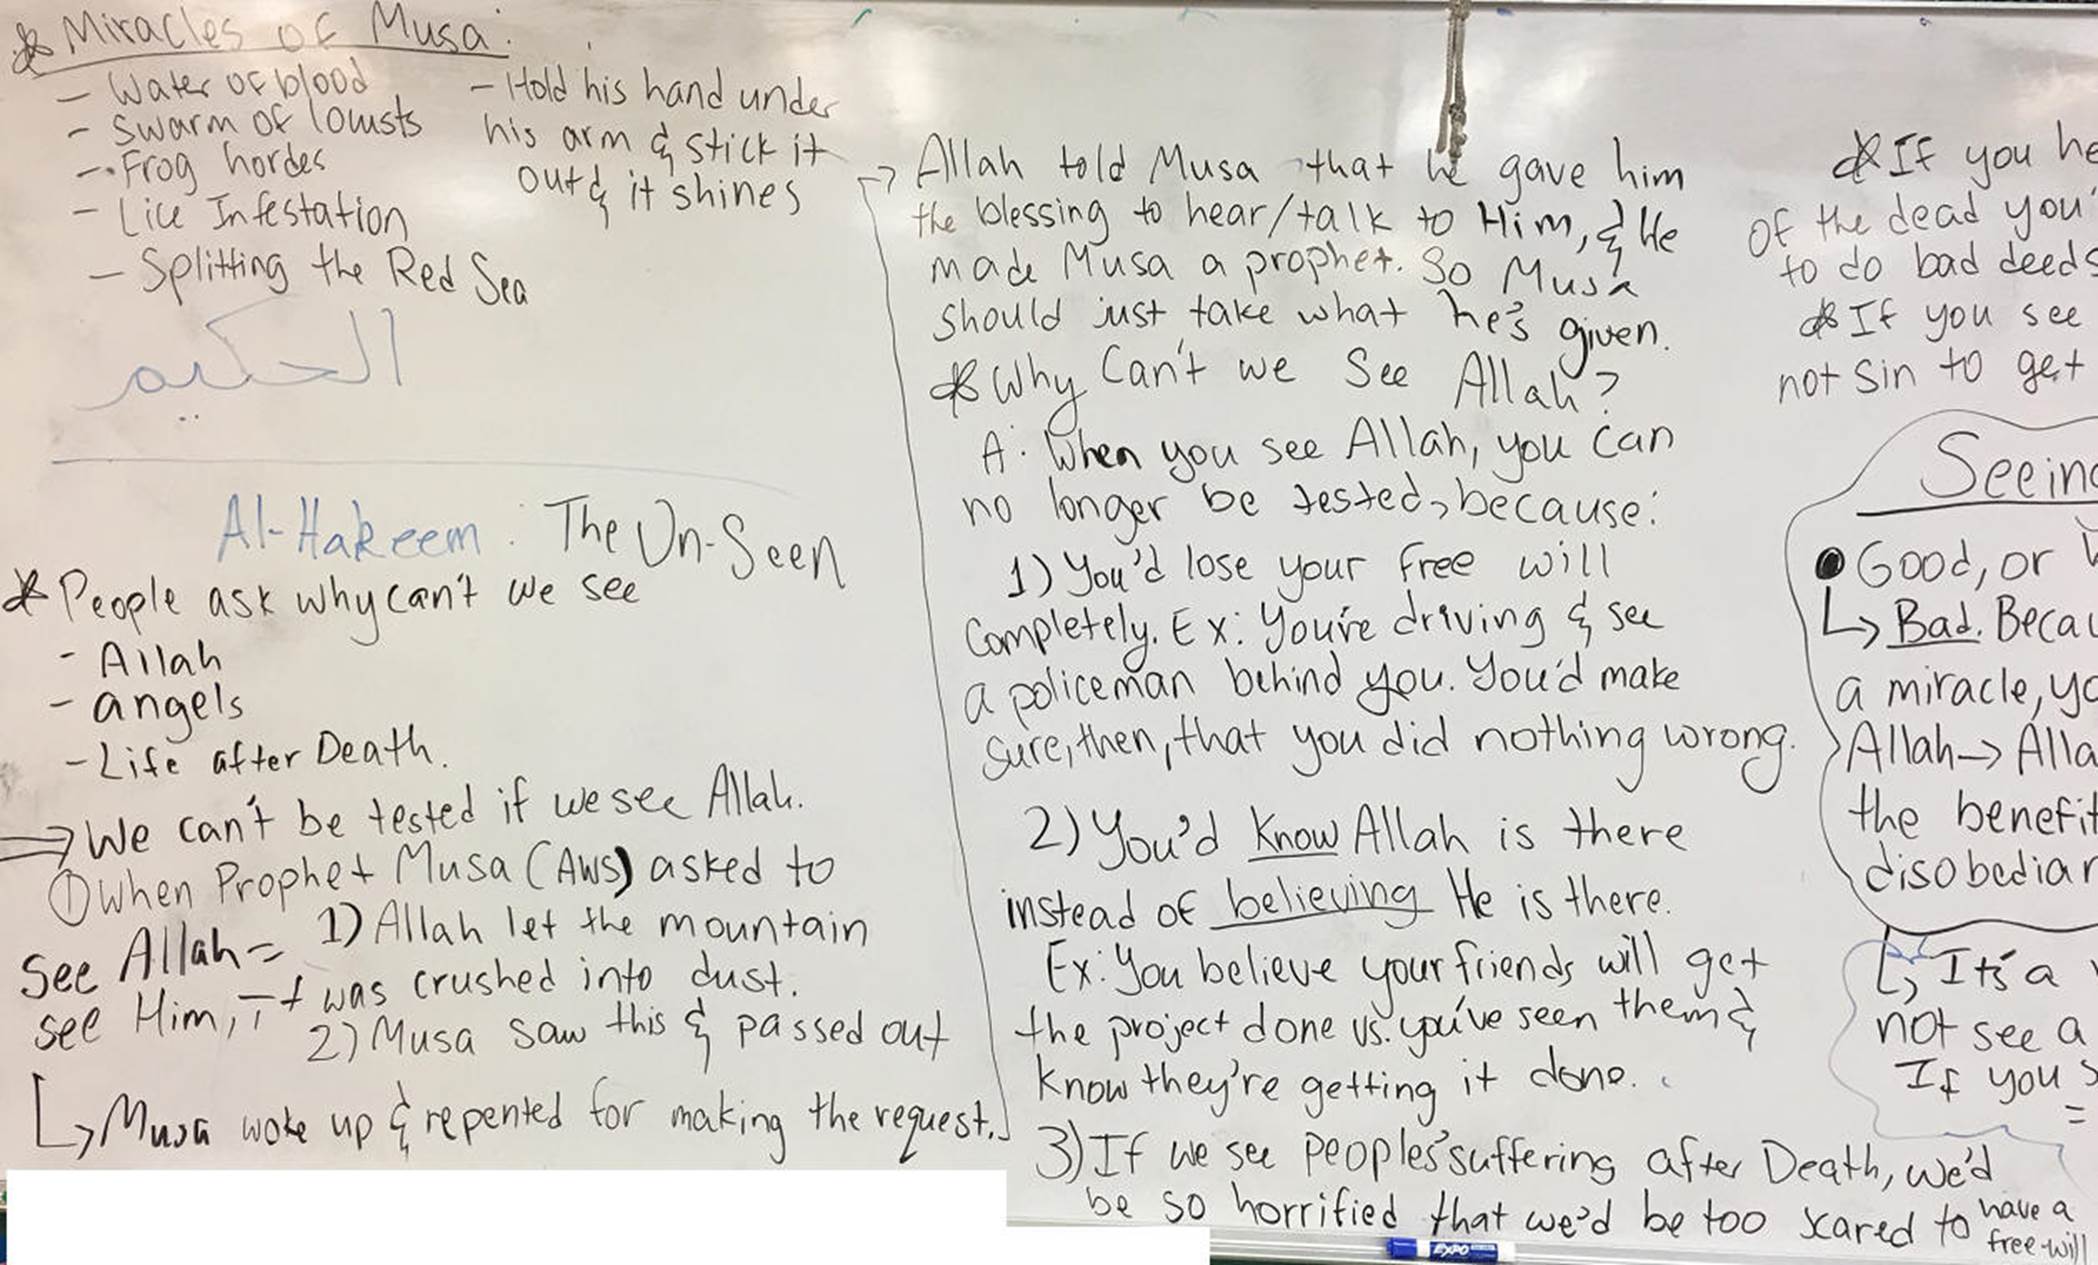 * Miracles of Musa:
- Water of blood
- Swarm of locusts
- Frog hordes
- Lice Infestation
- Splitting the Red Sea
- Hold his hand under
his arm & stick it
out & it shines
الحكيم
Al-Hakeem : The Un-Seen
* People ask why can't we see
- Allah
- angels
- Life after Death.
⇒ We can't be tested if we see Allah.
① When Prophet Musa (AWS) asked to
see Allah =
see Him, It
1) Allah let the mountain
was crushed into dust.
2) Musa saw this & passed out
↳ Musa woke up & repented for making the request.
→ Allah told Musa that he gave him
the blessing to hear/talk to Him, & He
made Musa a prophet. So Musa
should just take what he's given.
* Why Can't we See Allah?
A: When you see Allah, you can
no longer be tested, because:
1) You'd lose your free will
completely. Ex: You're driving & see
a policeman behind you. You'd make
sure, then, that you did nothing wrong.
2) You'd Know Allah is there
instead of believing He is there.
Ex: You believe your friends will get
the project done vs. you've seen them &
know they're getting it done.
3) If we see peoples' suffering after Death, we'd
be so horrified that we'd be too scared to have a
free-will
* If you he
of the dead you
to do bad deeds
* If you see
not sin to get
Seeing
● Good, or
↳ Bad. Becau
a miracle, yo
Allah → Alla
the benefit
disobedian
↳ It's a
not see a
If you s
=
EXPO